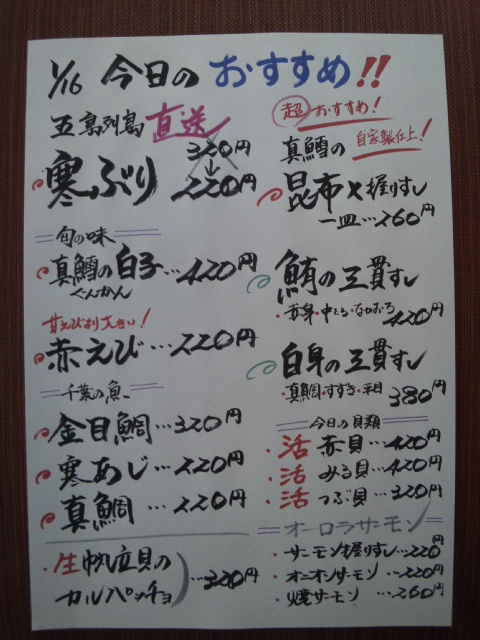 1/16 今日の おすすめ!!
五島列島 直送
320円
↓
寒ぶり 220円
旬の味
真鱈の白子…420円
ぐんかん
甘えびより大きい!
赤えび…220円
千葉の魚
金目鯛…320円
寒あじ…220円
真鯛…220円
・生帆立貝の
カルパッチョ…320円
超おすすめ!
真鱈の 自家製仕上!
昆布〆握りすし
一皿…260円
鮪の三貫すし
・赤身・中とろ・なかおち 420円
白身の三貫すし
・真鯛・すずき・平目 380円
今日の貝類
・活 赤貝…420円
・活 みる貝…420円
・活 つぶ貝…320円
オーロラサーモン
・サーモン握りすし…220円
・オニオンサーモン…220円
・焼サーモン…260円